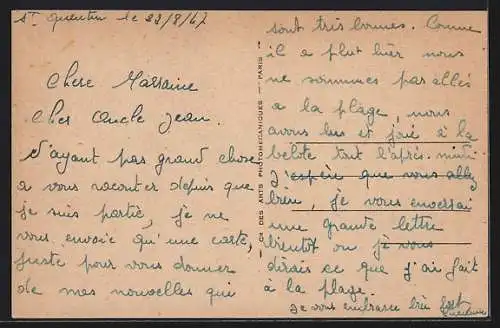 St Quentin le 22/8/67
Chere Marraine
Cher Oncle Jean.
N'ayant pas grand chose
a vous raconter depuis que
je suis partie, je ne
vous envoie qu'une carte,
juste pour vous donner
de mes nouvelles qui
CP DES ARTS PHOTOMECANIQUES — PARIS
sont très bonnes. Comme
il a plut hier nous
ne sommes pas allés
a la plage, nous
avons lus et joué à la
belote tout l'après-midi
J'espère que vous allez
bien, je vous enverrai
une grande lettre
bientôt ou je vous
dirais ce que j'ai fait
à la plage.
Je vous embrasse bien fort